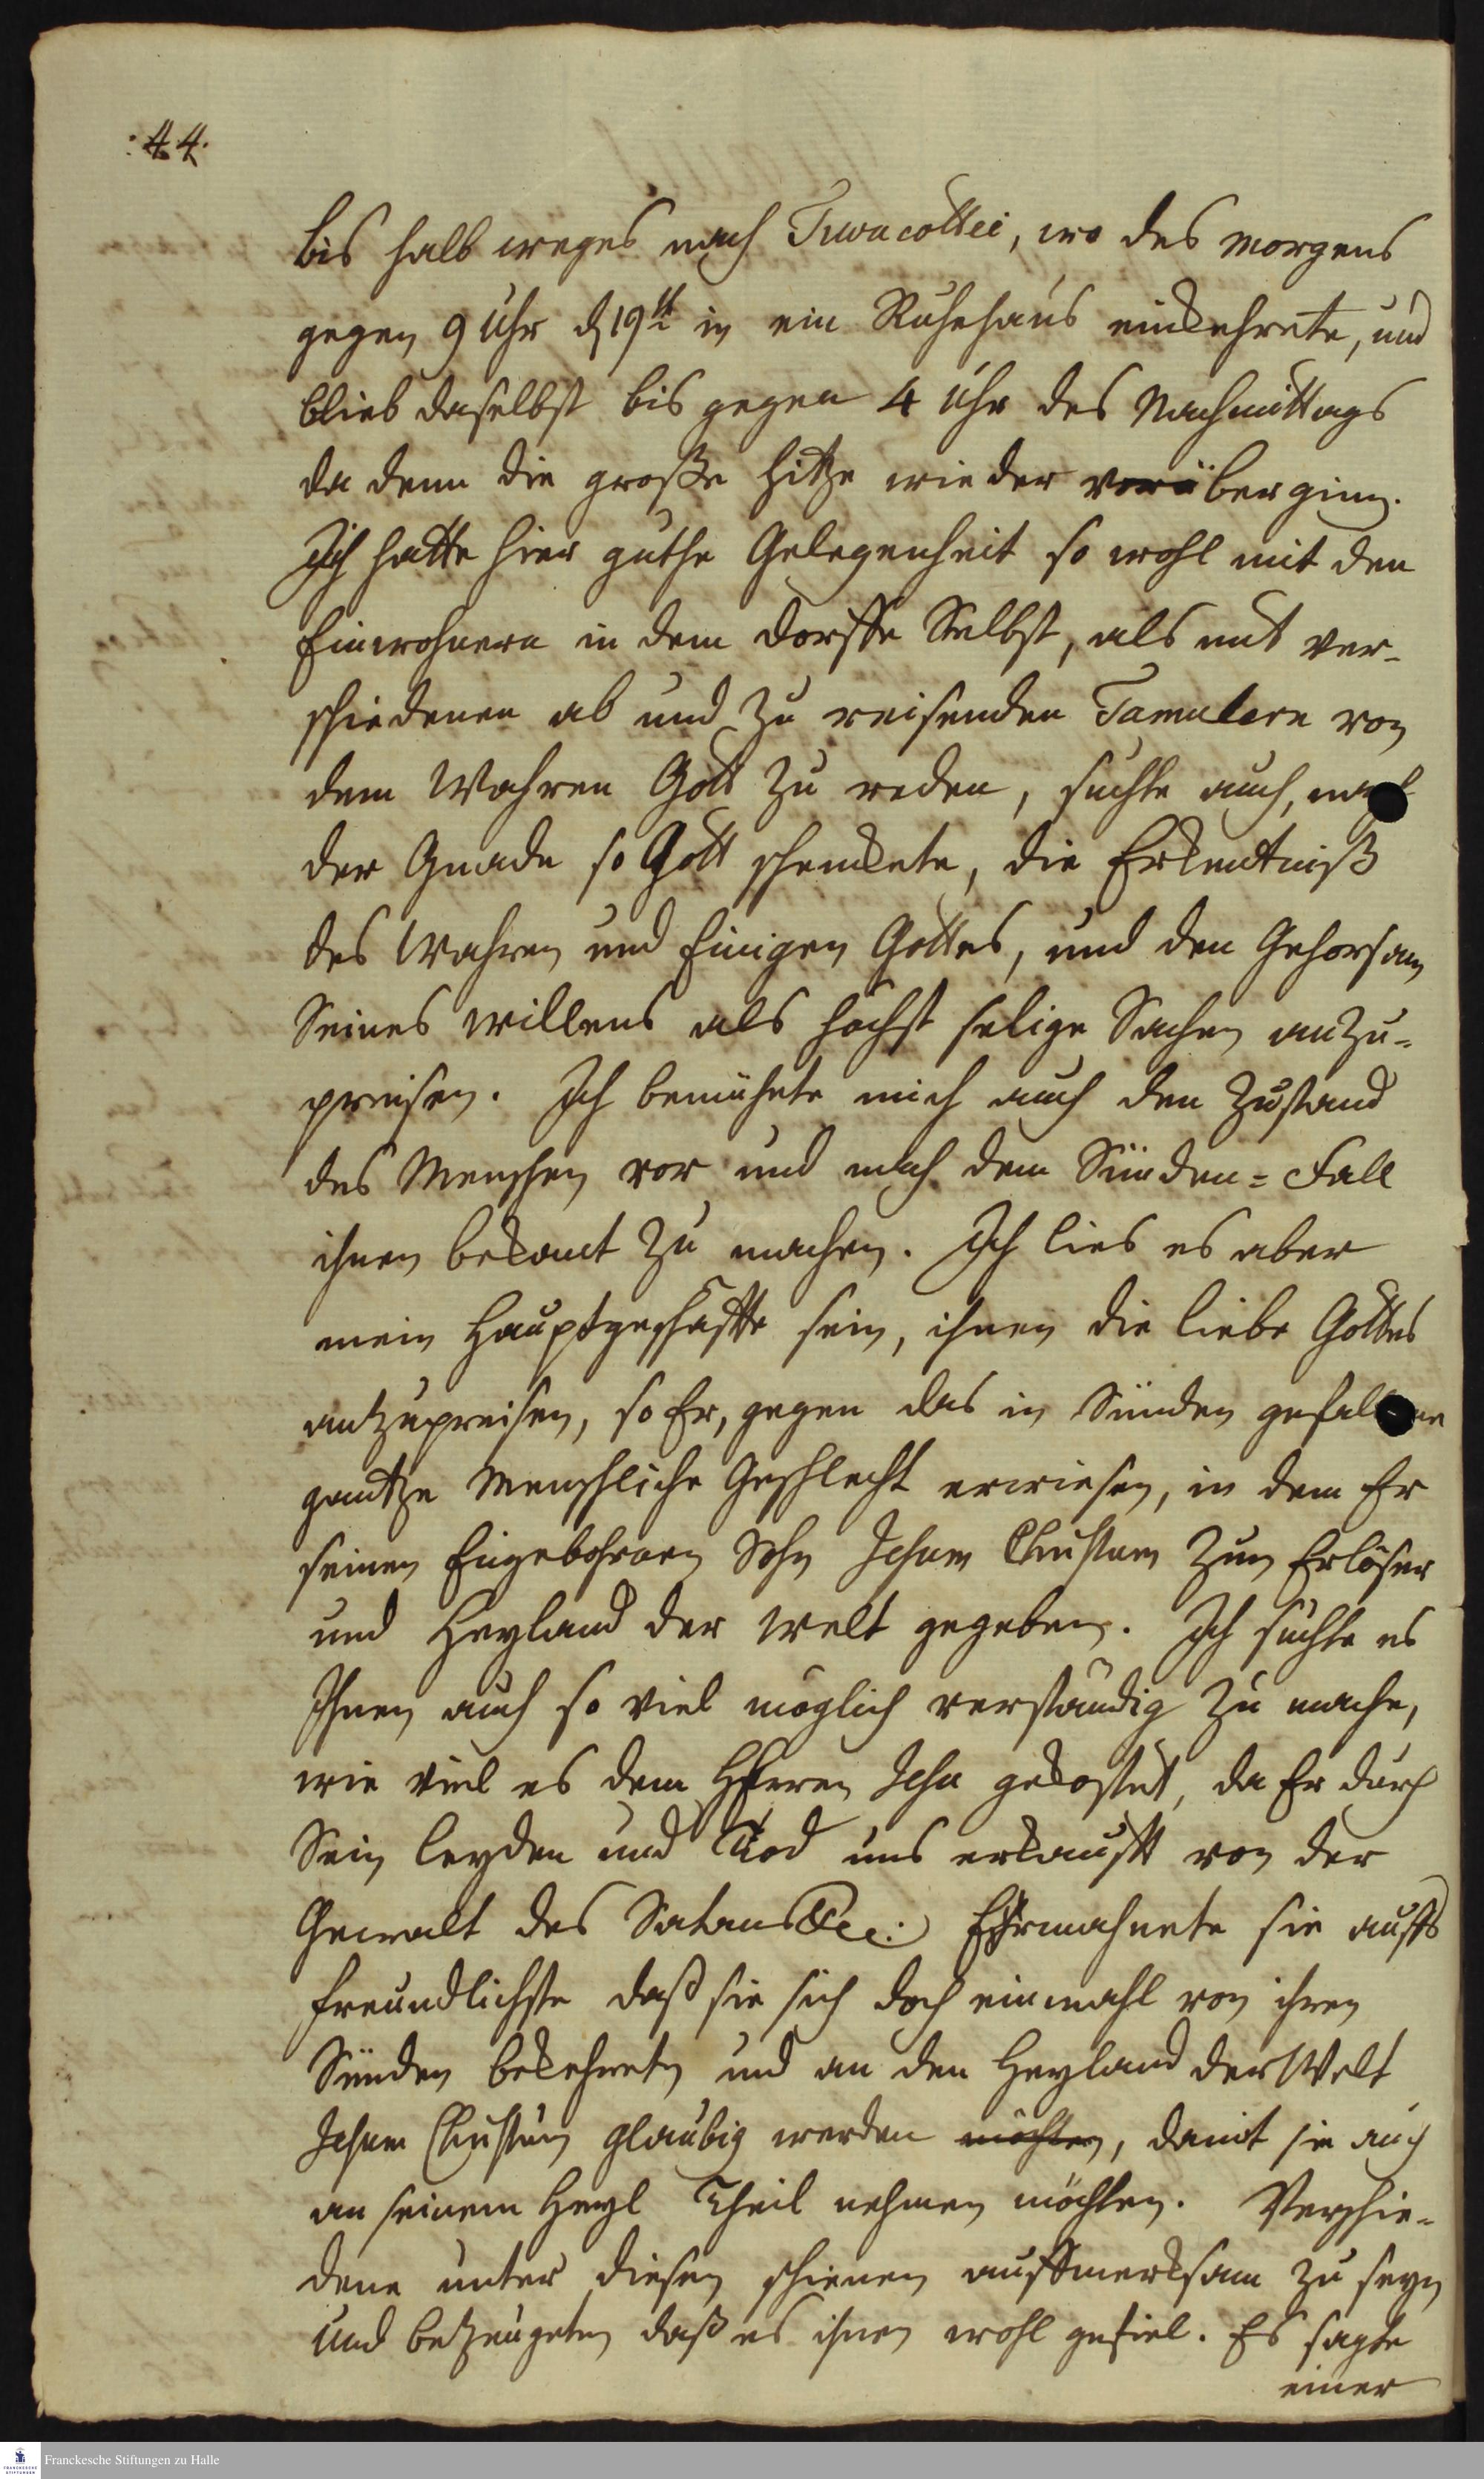 :44.
bis halb weges nach Tuvacottei, wo des morgens
gegen 9 Uhr d 19t in ein Ruhehaus einkehrete, und
blieb daselbst bis gegen 4 Uhr des Nachmittags
da denn die große Hitze wieder vorüber ging.
Ich hatte hier guthe Gelegenheit so wohl mit den
Einwohnern in dem Dorffe Selbst, als mit ver-
schiedenen ab und zu reisenden Tamulern von
dem Wahren Gott zu reden, suchte auch, nach
der Gnade so Gott schenckete, die Erkentniß
des Wahren und Einigen Gottes, und den Gehorsam
Seines Willens als höchst selige Sachen anzu-
preisen. Ich bemühete mich auch den Zustand
des Menschen vor und nach dem Sünden-Fall
ihnen bekant zu machen. Ich lies es aber
mein Hauptgeschäffte sein, ihnen die Liebe Gottes
anzupreisen, so Er, gegen das in Sünden gefallene
gantze Menschliche Geschlecht erwiesen, in dem Er
seinen Eingebohrnen Sohn Jesum Christum zum Erlöser
und Heyland der Welt gegeben. Ich suchte es
Ihnen auch so viel möglich verständig zu mache,
wie viel es dem HErren Jesu gekostet, da Er durch
Sein Leyden und Tod uns erkaufft von der
Gewalt des Satans &cc: Ermahnete sie auffs
freundlichste daß sie sich doch einmahl von ihren
Sünden bekehreten und an den Heyland der Welt
Jesum Christum glaubig werden möchten, damit sie auch
an seinem Heyl Theil nehmen möchten. Verschie-
dene unter diesen schienen auffmerksam zu seyn
und bezeugeten daß es ihnen wohl gefiel. Es sagte
einer
Franckesche Stiftungen zu Halle